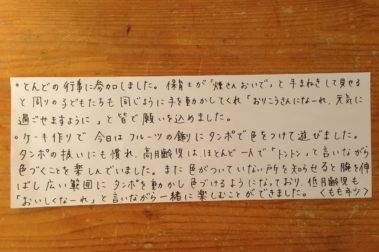 ・とんどの行事に参加しました。保育士が「煙さんおいで」と手まねきして見せる
と周りの子どもたちも同じように手を動かしてくれ「おりこうさんになーれ、元気に
過ごせますように」と皆で願いを込めました。
・ケーキ作りで今日はフルーツの飾りにタンポで色をつけて遊びました。
タンポの扱いにも慣れ、高月齢児は、ほとんど一人で「トントン」と言いながら
色づくことを楽しんでいました。また色がついていない所を知らせると腕を伸
ばし広い範囲にタンポを動かし色づけるようになっており、低月齢児も
「おいしくなーれ」と言いながら一緒に楽しむことができました。